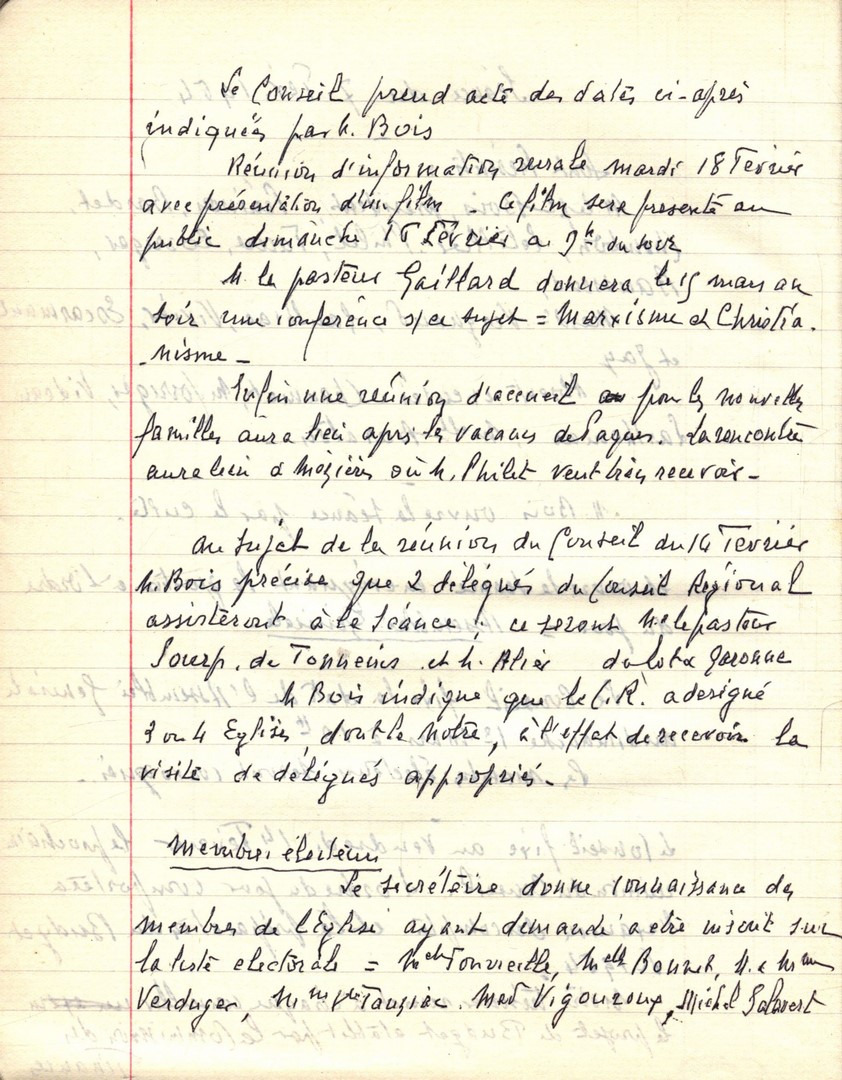 Le Conseil prend acte des dates ci-après
indiquées par M. Bois
Réunion d'information rurale mardi 18 Février
avec présentation d'un film - Ce film sera présenté au
public dimanche 16 Février a 9h du soir
M. le pasteur Gaillard donnera le 15 mars au
soir une conférence s/ce sujet = Marxisme et Christia-
-nisme-
Enfin une réunion d'accueil pour les nouvelles
familles aura lieu après les vacances de Pâques. La rencontre
aura lieu à Mézières où M. Philit veut bien recevoir-
Au sujet de la réunion du Conseil du 14 Février
M. Bois précise que 2 délégués du Conseil Régional
assisteront à la séance ; ce seront M. le pasteur
de Tonneins et M. Alier du Lot & Garonne
M Bois indique que le C.R. a designé
3 ou 4 Eglises, dont la Notre, à l'effet de recevoir la
visite de délégués appropriés-
Membres électeurs
Le secrétaire donne connaissance des
membres de l'Eglise ayant demandé a etre inscrit sur
la liste electorale = Melle Tonvieille, Melle Bonnet, M. & Mme
Verduger, Mme Vve Tauziac. Mad Vigouroux, Michel Salavert